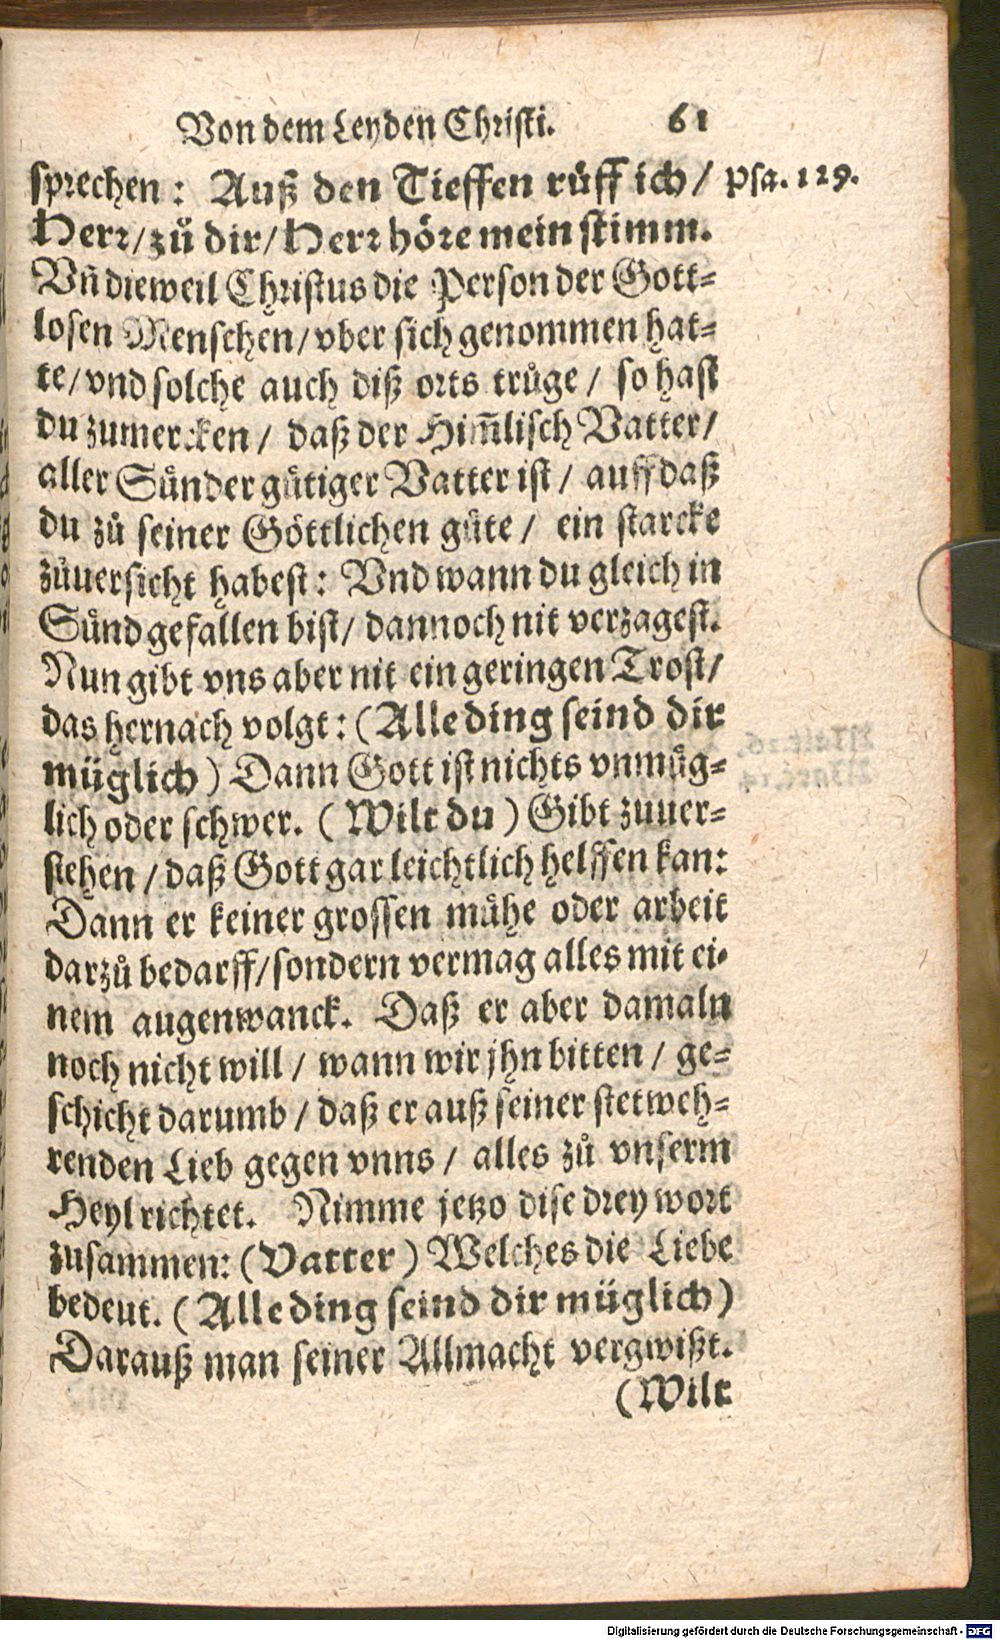 Von dem Leyden Christi. 61
sprechen: Auß den Tieffen růff ich/ Psa. 129.
Herr/zů dir/Herr höre mein stimm.
Vñ dieweil Christus die Person der Gott-
losen Menschen/vber sich genommen hat-
te/vnd solche auch diß orts trůge/ so hast
du zumercken/ daß der Him̃lisch Vatter/
aller Sünder gütiger Vatter ist/ auff daß
du zů seiner Göttlichen güte/ ein starcke
zůuersicht habest: Vnd wann du gleich in
Sünd gefallen bist/ dannoch nit verzagest.
Nun gibt vns aber nit ein geringen Trost/
das hernach volgt: (Alle ding seind dir
müglich) Dann Gott ist nichts vnmüg-
lich oder schwer. (Wilt du) Gibt zuuer-
stehen/daß Gott gar leichtlich helffen kan:
Dann er keiner grossen mühe oder arbeit
darzů bedarff/sondern vermag alles mit ei-
nem augenwanck. Daß er aber damaln
noch nicht will/ wann wir jhn bitten/ ge-
schicht darumb/ daß er auß seiner stetweh-
renden Lieb gegen vnns/ alles zů vnserm
Heyl richtet. Nimme jetzo dise drey wort
zusammen: (Vatter) Welches die Liebe
bedeut. (Alle ding seind dir müglich)
Darauß man seiner Allmacht vergwißt.
(Wilt
Digitalisierung gefördert durch die Deutsche Forschungsgemeinschaft - DFG